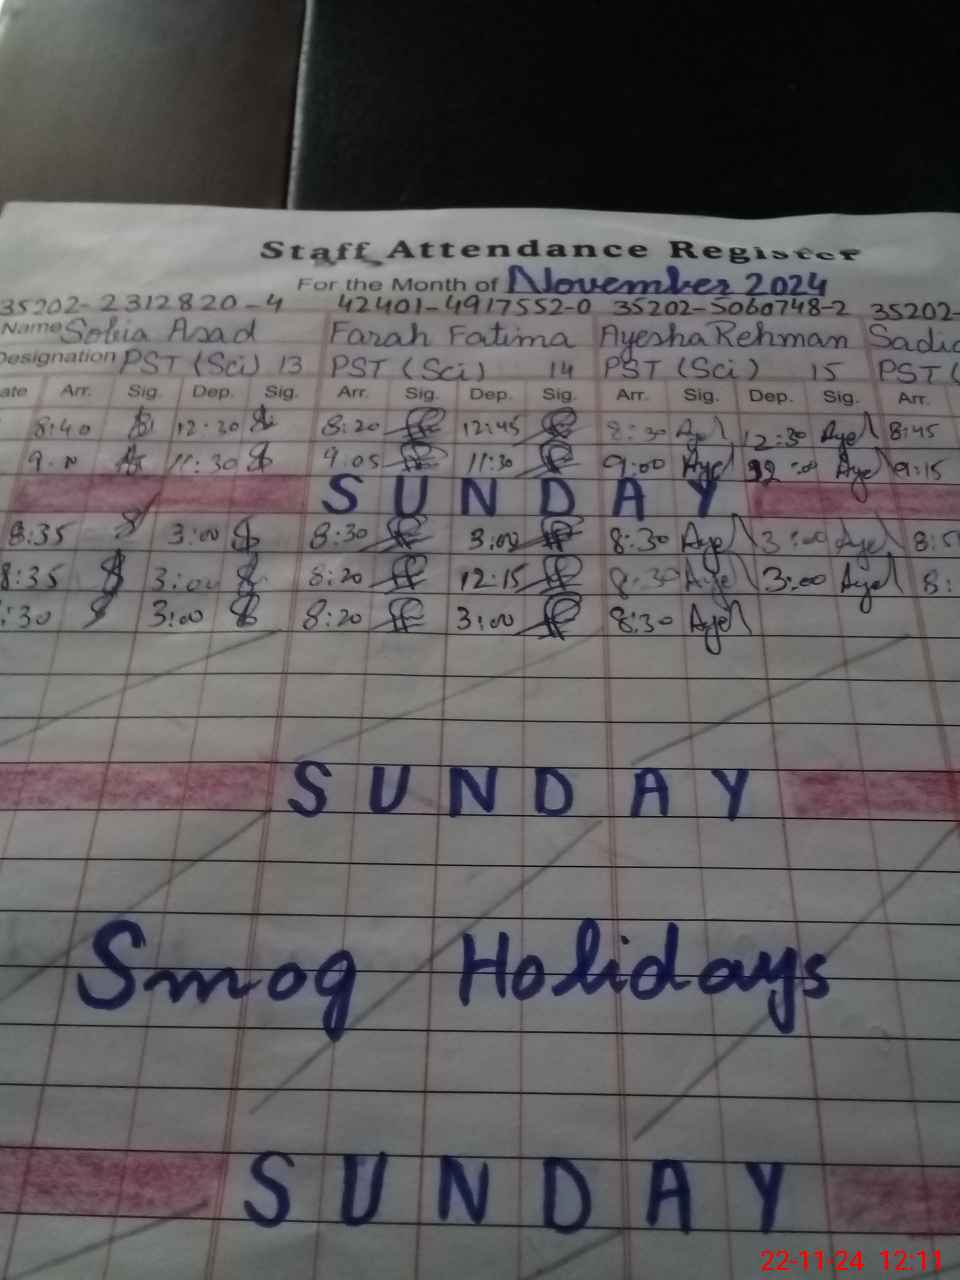 Staff Attendance Register
For the Month of November 2024
35202-2312820-4 42401-4917552-0 35202-5060748-2 35202-
Name Sobia Asad Farah Fatima Ayesha Rehman Sadi
Designation PST (Sci) 13 PST (Sci) 14 PST (Sci) 15 PST (
ate Arr. Sig. Dep. Sig. Arr. Sig. Dep. Sig. Arr. Sig. Dep. Sig. Arr.
8:40 12:30 8:20 12:45 8:30 Aye 12:30 Aye 8:45
11:30 9.05 11:30 9:00 Aye Aye 9:15
SUNDAY
8:35 3:00 8:30 3:00 8:30 Aye 3:00 Aye
8:35 3:00 8:20 12:15 8:30 Aye 3:00 Aye 8:
:30 3:00 8:20 3:00 8:30 Aye
SUNDAY
Smog Holidays
SUNDAY
22-11-24 12:11